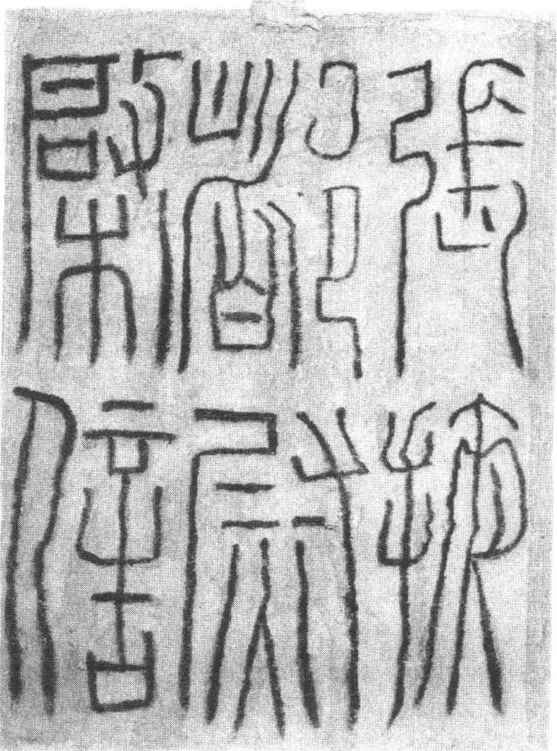 張掖
都尉
棨信